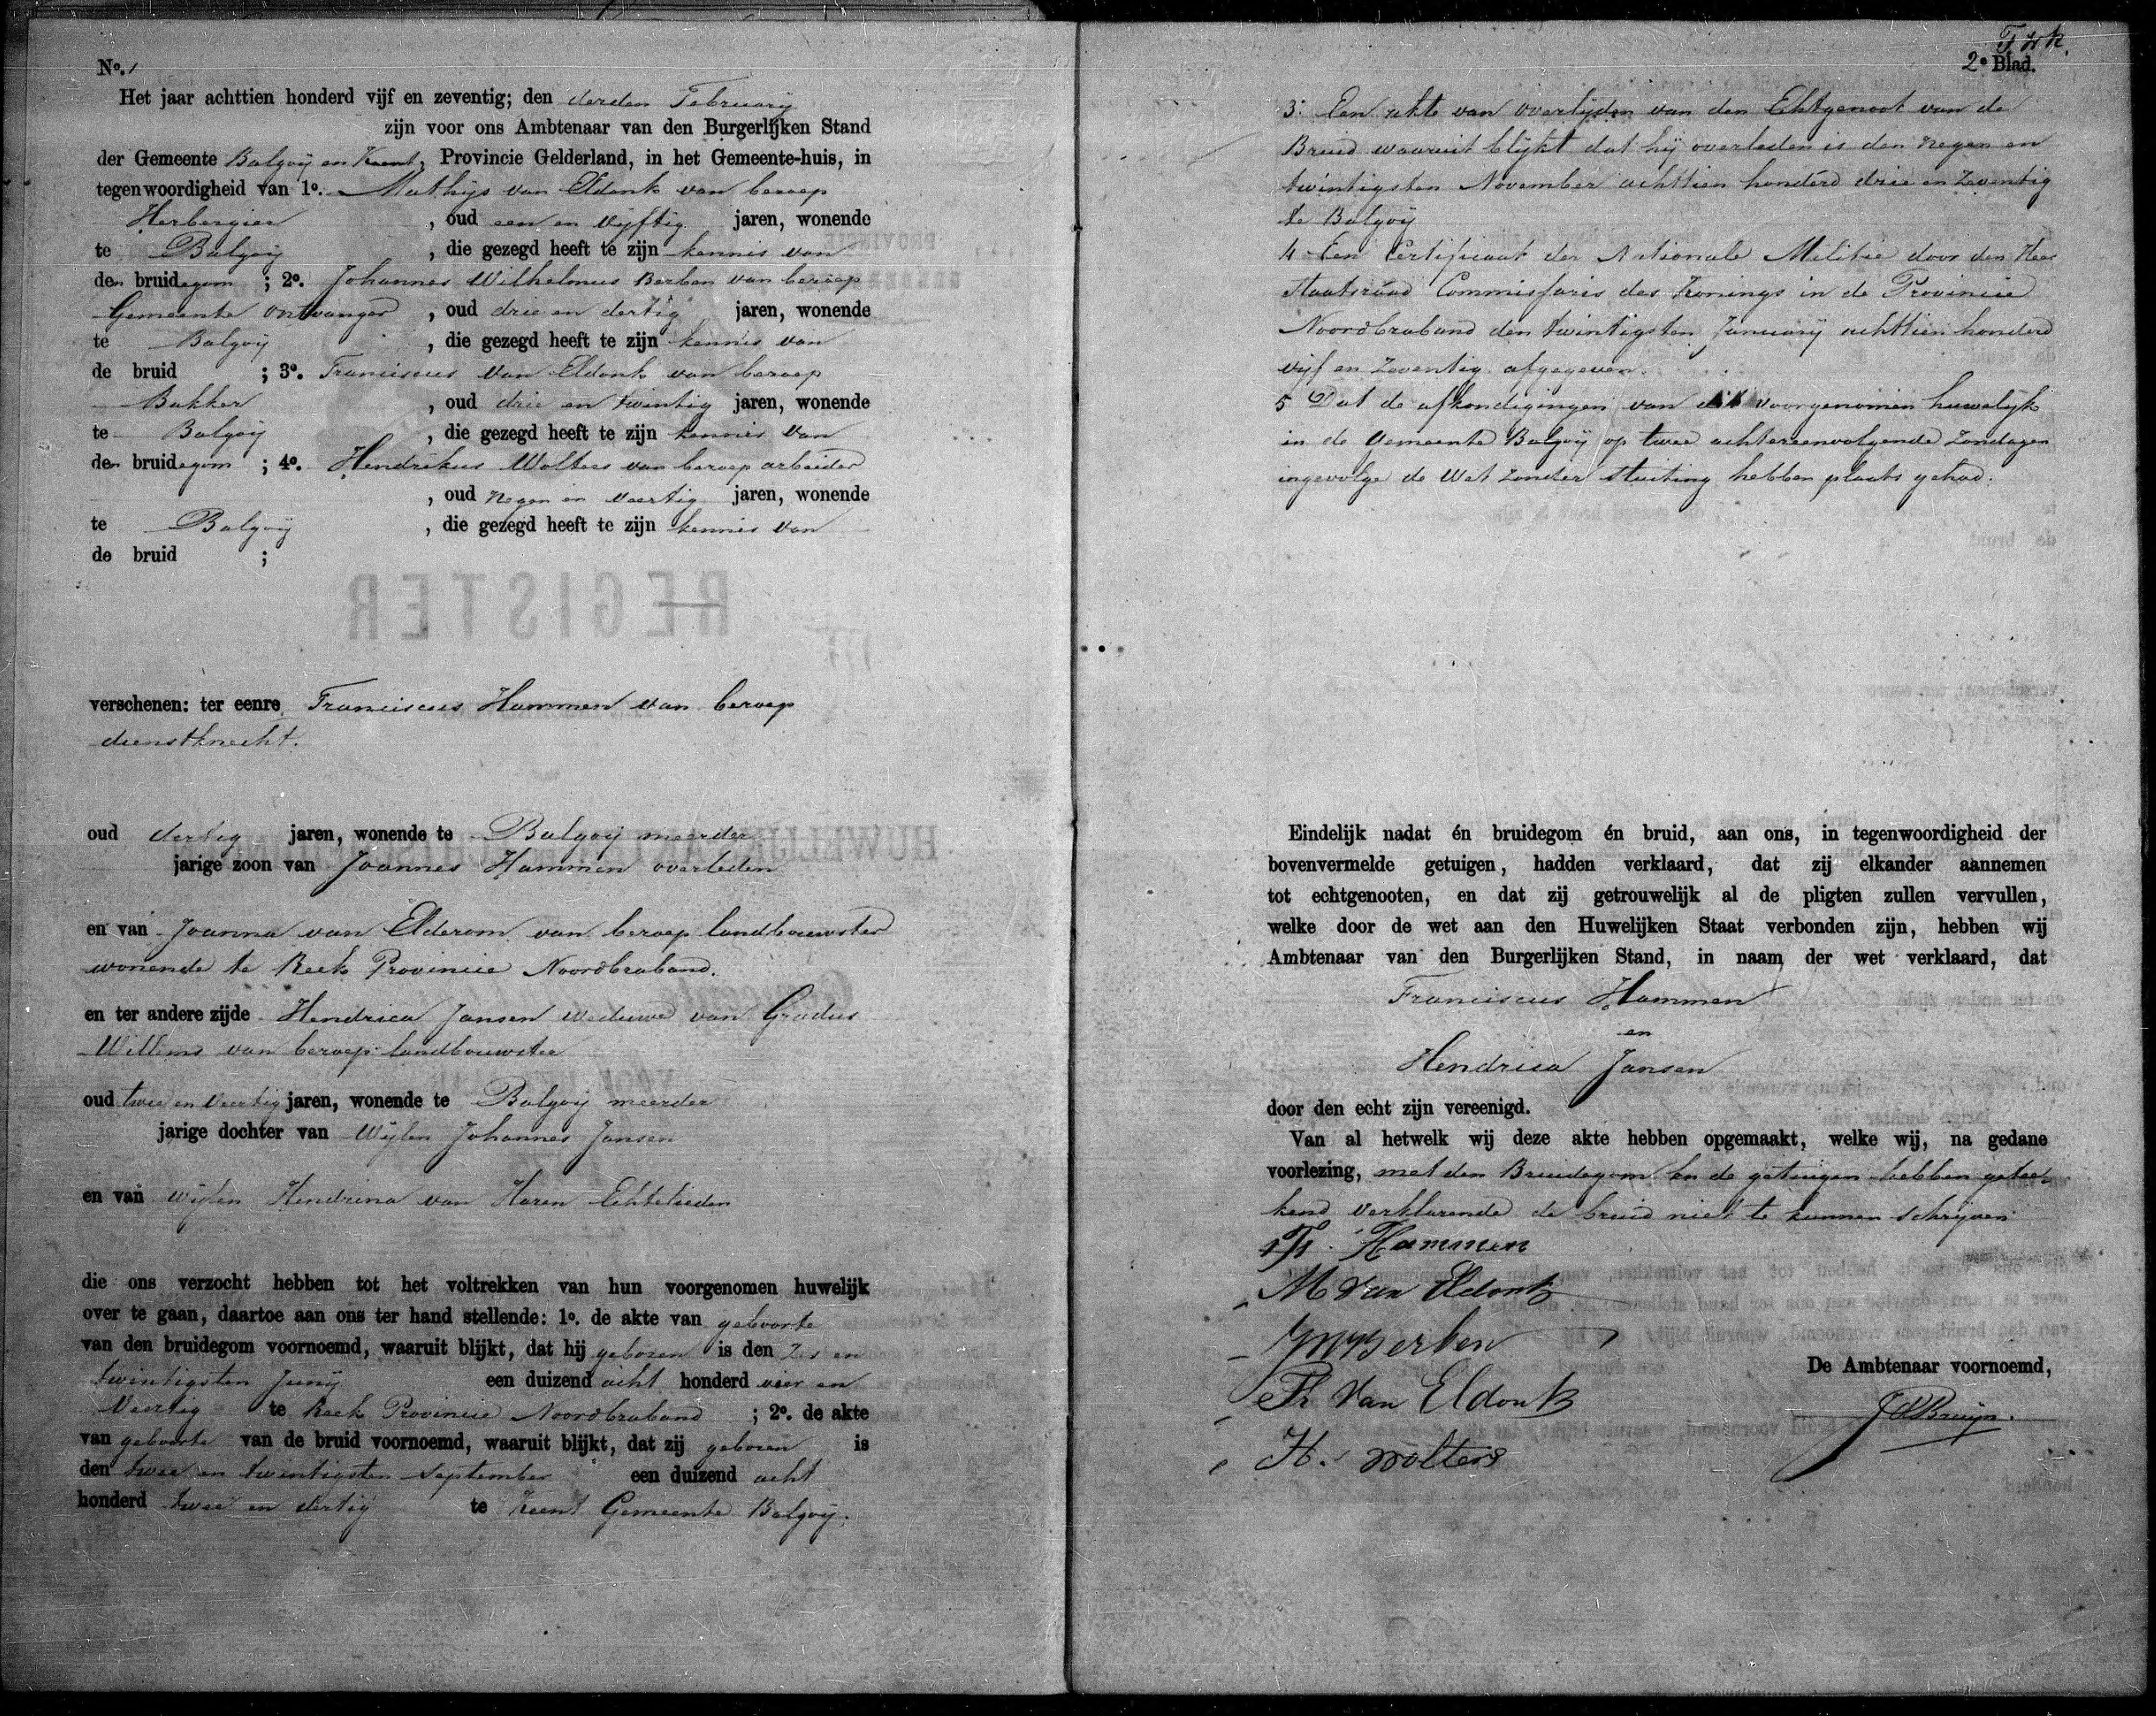 No. 1
Het jaar achttien honderd vijf en zeventig; den derden February
zijn voor ons Ambtenaar van den Burgerlijken Stand
der Gemeente Balgoij en Keent, Provincie Gelderland, in het Gemeente-huis, in
tegenwoordigheid van 1o. Mathijs van Eldonk van beroep
Herbergier , oud een en vijftig jaren, wonende
te Balgoij , die gezegd heeft te zijn kennis van
den bruidegom ; 2o. Johannes Wilhelmus Berben van beroep
Gemeente ontvanger , oud drie en dertig jaren, wonende
te Balgoij , die gezegd heeft te zijn kennis van
de bruid ; 3o. Franciscus van Eldonk van beroep
Bakker , oud drie en twintig jaren, wonende
te Balgoij , die gezegd heeft te zijn kennis van
den bruidegom ; 4o. Hendrikus Wolters van beroep arbeider
, oud negen en veertig jaren, wonende
te Balgoij , die gezegd heeft te zijn kennis van
de bruid ;
REGISTER
verschenen: ter eenre Franciscus Hammen van beroep
dienstknecht.
oud dertig jaren, wonende te Balgoij meerder
jarige zoon van Joannes Hammen overleden
en van Joanna van Elderom van beroep landbouwster
wonende te Reek Provincie Noordbraband.
en ter andere zijde Hendrica Jansen weduwe van Gradus
Willems van beroep landbouwster
oud twee en veertig jaren, wonende te Balgoij meerder
jarige dochter van Wijlen Johannes Jansen
en van wijlen Hendrina van Haren Echtelieden
die ons verzocht hebben tot het voltrekken van hun voorgenomen huwelijk
over te gaan, daartoe aan ons ter hand stellende: 1o. de akte van geboorte
van den bruidegom voornoemd, waaruit blijkt, dat hij geboren is den Zes en
twintigsten Junij een duizend acht honderd vier en
Veertig te Reek Provincie Noordbraband ; 2o. de akte
van geboorte van de bruid voornoemd, waaruit blijkt, dat zij geboren is
den twee en twintigsten September een duizend acht
honderd twee en dertig te Keent Gemeente Balgoij.
2e Blad.
3. Een akte van overlijden van den Echtgenoot van de
Bruid waaruit blijkt dat hij overleden is den negen en
twintigsten November achttien honderd drie en Zeventig
te Balgoij
4 Een Certificaat der Nationale Militie door den Heer
Staatsraad Commissaris des Konings in de Provincie
Noordbraband den twintigsten January achttien honderd
vijf en Zeventig afgegeven.
5 Dat de afkondigingen van dit voorgenomen huwelijk
in de Gemeente Balgoij op twee achtereenvolgende Zondagen
ingevolge de Wet zonder stuiting hebben plaats gehad.
Eindelijk nadat én bruidegom én bruid, aan ons, in tegenwoordigheid der
bovenvermelde getuigen, hadden verklaard, dat zij elkander aannemen
tot echtgenooten, en dat zij getrouwelijk al de pligten zullen vervullen,
welke door de wet aan den Huwelijken Staat verbonden zijn, hebben wij
Ambtenaar van den Burgerlijken Stand, in naam der wet verklaard, dat
Franciscus Hammen
en
Hendrica Jansen
door den echt zijn vereenigd.
Van al hetwelk wij deze akte hebben opgemaakt, welke wij, na gedane
voorlezing, met den Bruidegom en de getuigen hebben getee-
kend verklarende de bruid niet te kunnen schrijven
Fr. Hammen
M van Eldonk
JW Berben
Fr van Eldonk
De Ambtenaar voornoemd,
H. Wolters